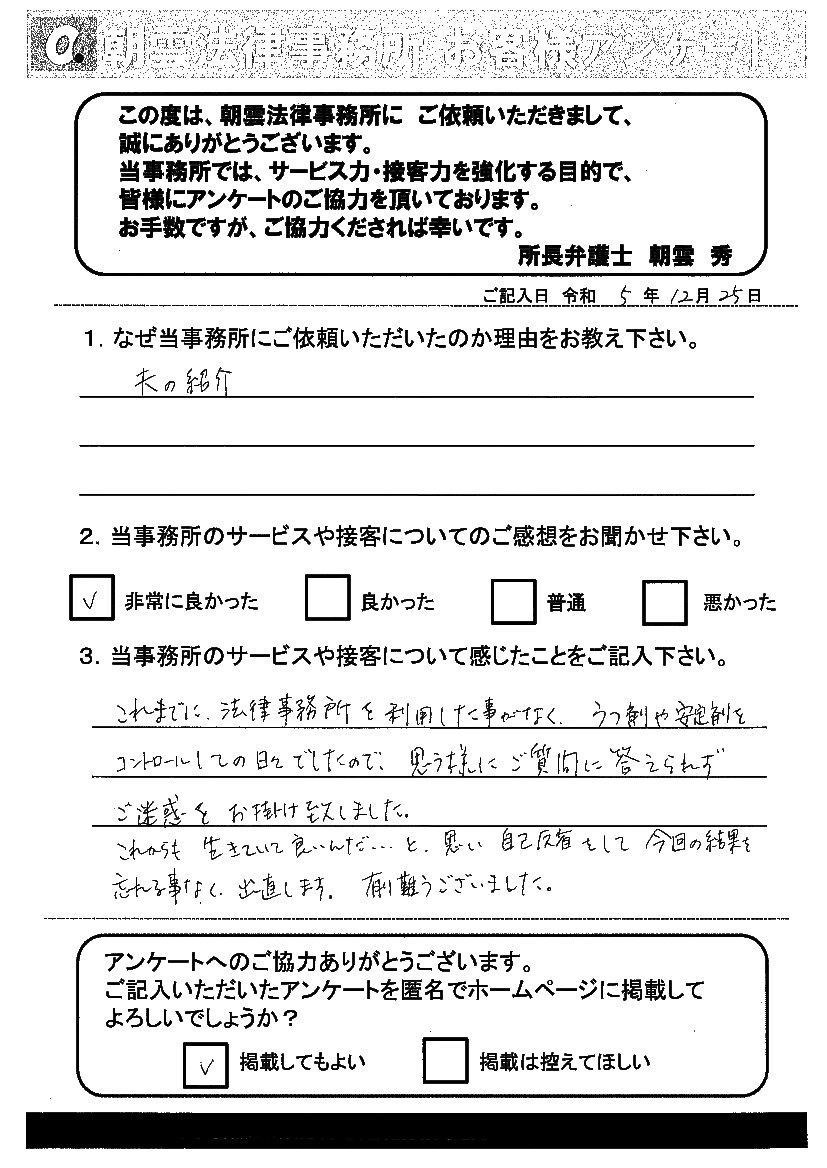 a. 朝雲法律事務所 お客様アンケート
この度は、朝雲法律事務所に ご依頼いただきまして、
誠にありがとうございます。
当事務所では、サービス力・接客力を強化する目的で、
皆様にアンケートのご協力を頂いております。
お手数ですが、ご協力くだされば幸いです。
所長弁護士 朝雲 秀
ご記入日 令和 5 年 12月 25日
1. なぜ当事務所にご依頼いただいたのか理由をお教え下さい。
夫の紹介
2. 当事務所のサービスや接客についてのご感想をお聞かせ下さい。
✓ 非常に良かった 良かった 普通 悪かった
3. 当事務所のサービスや接客について感じたことをご記入下さい。
これまでに、法律事務所を利用した事がなく、うつ剤や安定剤を
コントロールしての日々でしたので、思う様にご質問に答えられず
ご迷惑をお掛け致しました。
これからも 生きていて良いんだ…と、思い 自己反省をして 今回の結果を
忘れる事なく、出直します。有り難うございました。
アンケートへのご協力ありがとうございます。
ご記入いただいたアンケートを匿名でホームページに掲載して
よろしいでしょうか？
✓ 掲載してもよい 掲載は控えてほしい